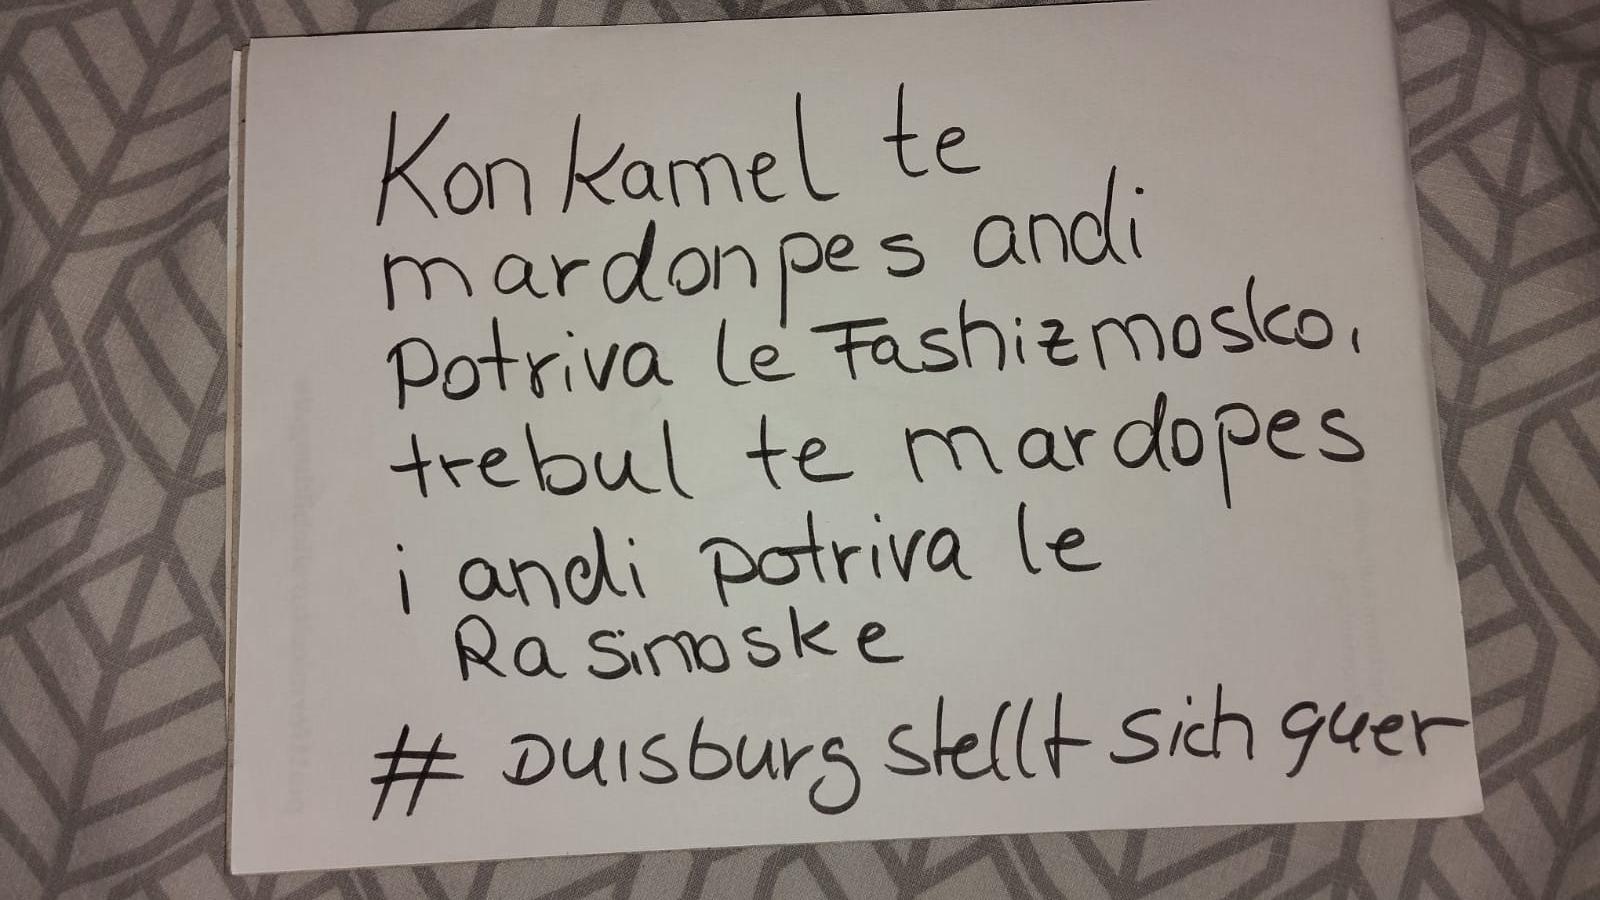 Kon kamel te
mardonpes andi
Potriva le Fashizmosko,
trebul te mardopes
i andi potriva le
Rasimoske
# Duisburg stellt sich quer